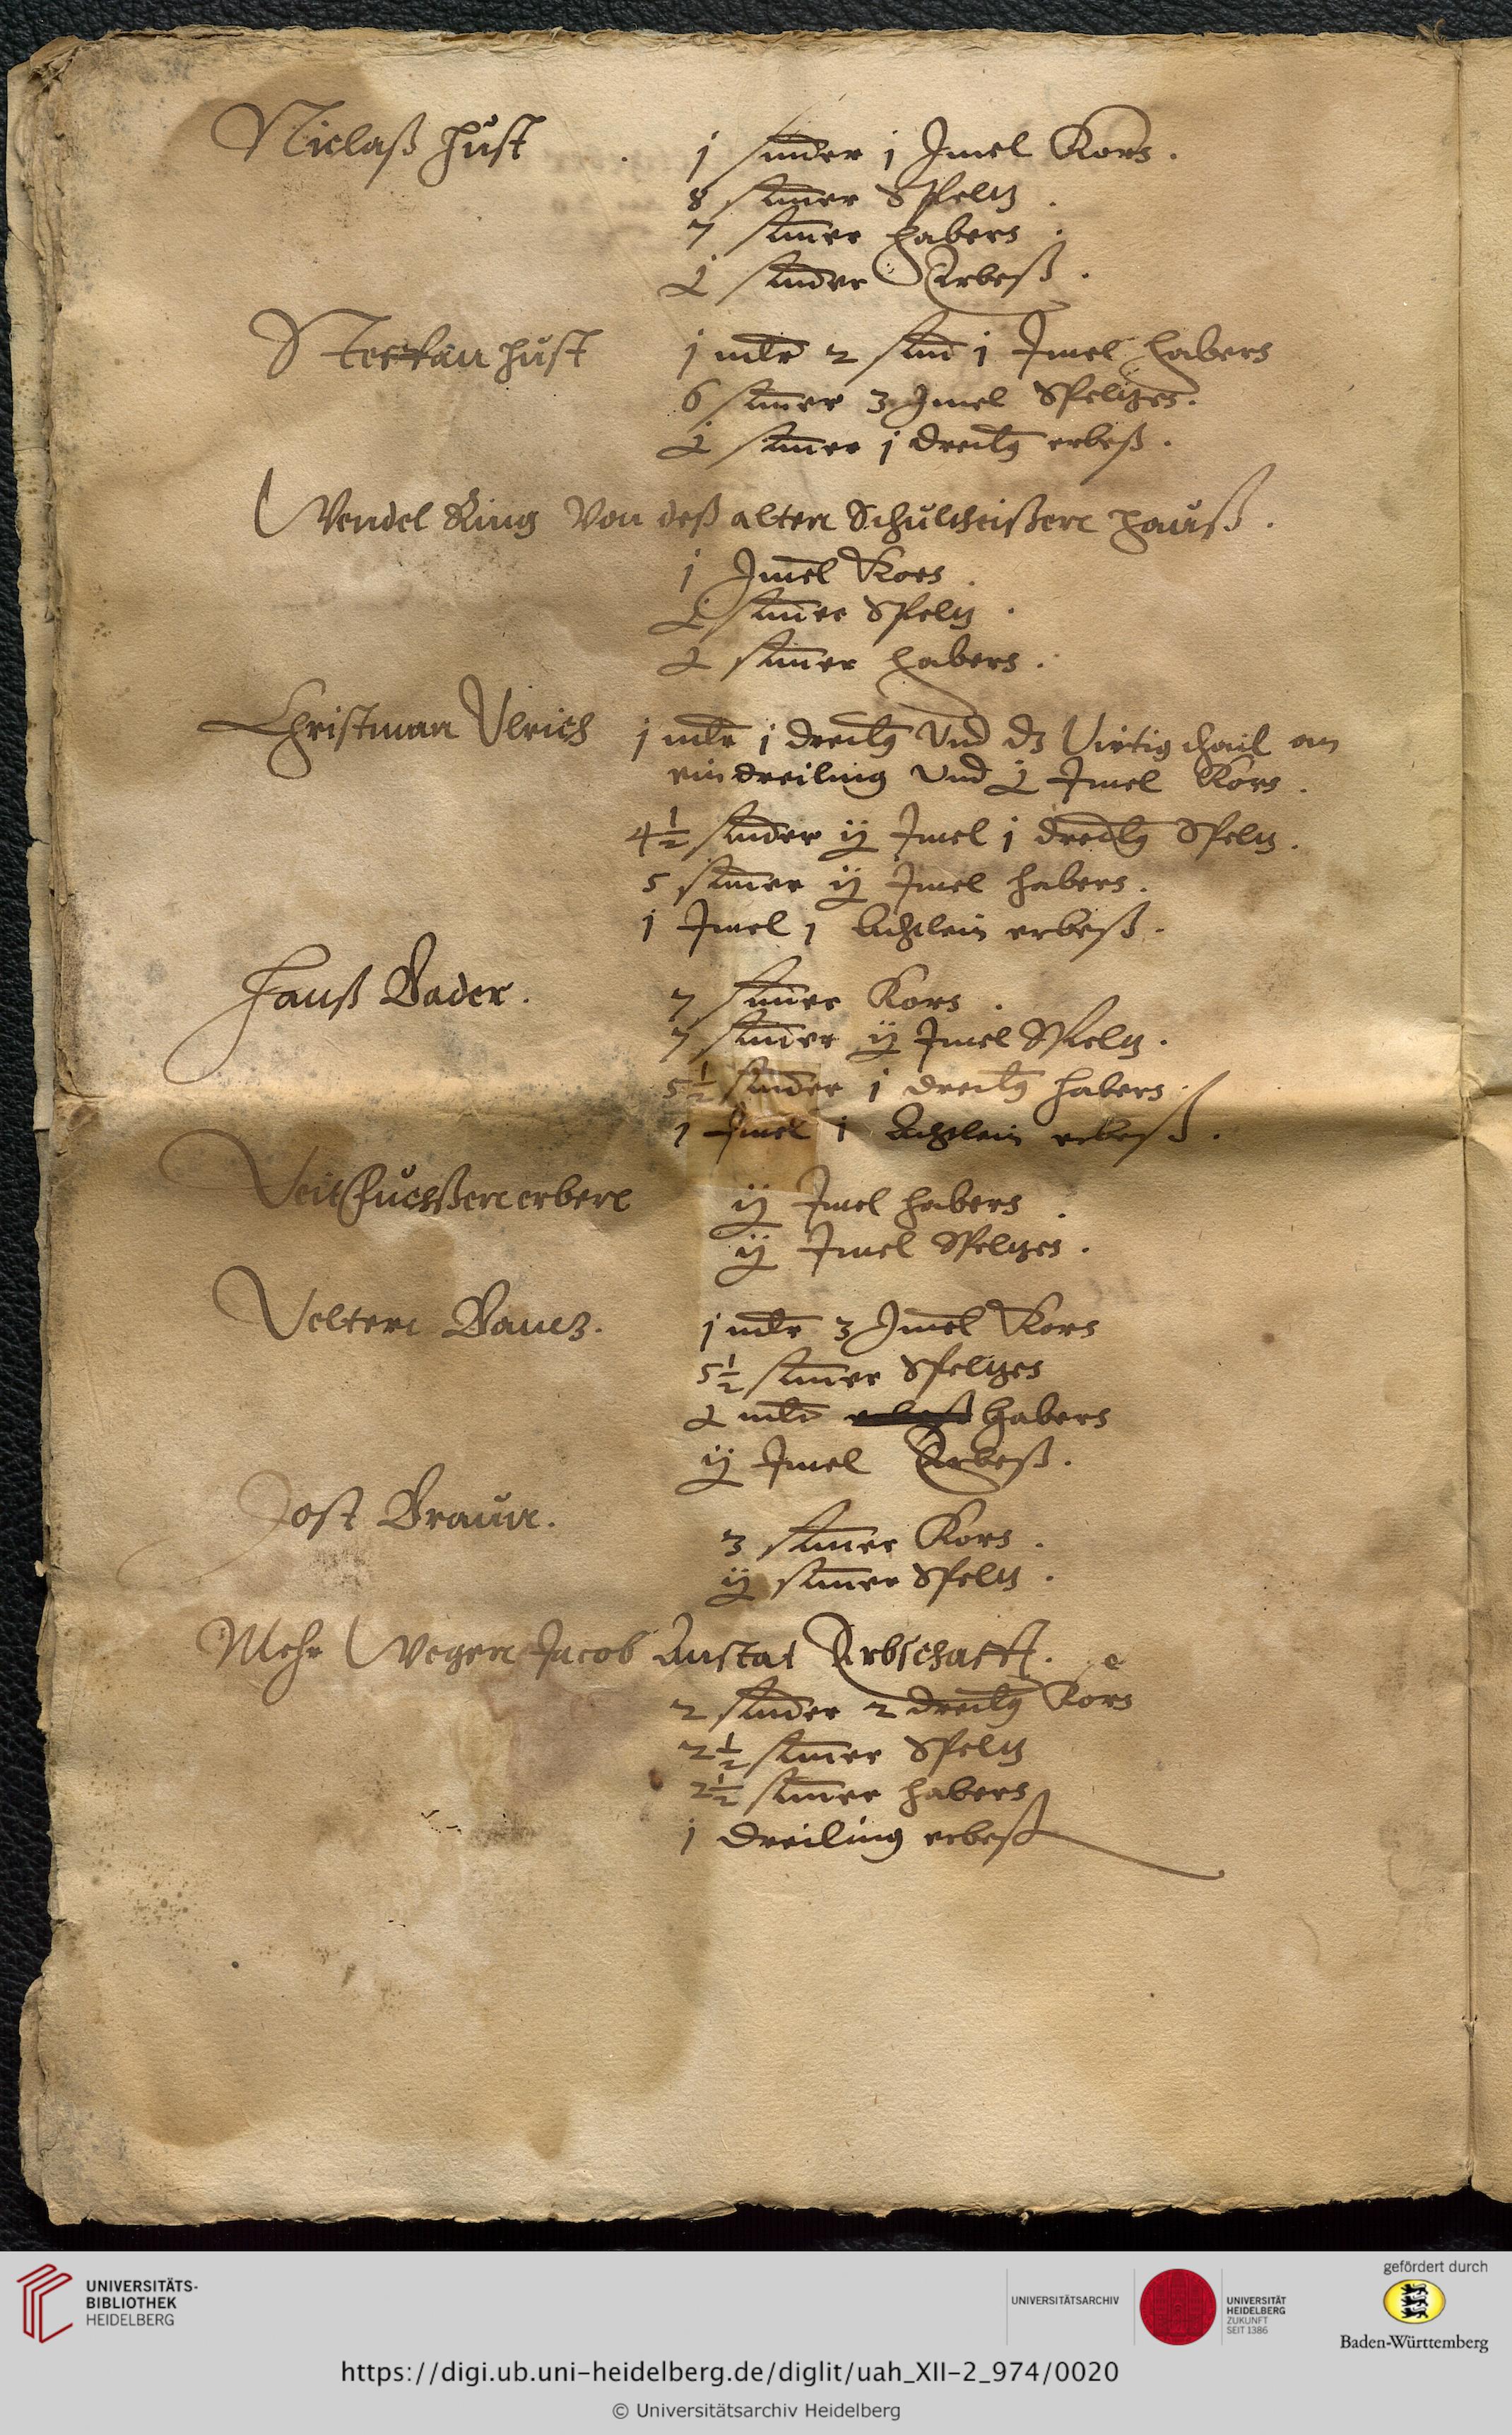 Niclaß Hust . j simer j Imel Korn .
8 simer Speltz .
7 simer habern .
½ simer Erbeß .
Steffan Hust j mlr 2 sim j Imel habern
6 simer 3 Imel Speltzen .
½ simer j dreilg erbeß .
Wendel King Von deß alten Schultheißen Hauß .
j Imel Korn .
½ simer Speltz .
½ simer habern .
Christman Ulrich j mlr j dreilg Vnd dz Virtig thail an
ein dreiling Vnd ½ Imel Korn .
4½ simer ij Imel j dreilg Speltz .
5 simer ij Imel habern .
j Imel j Achtlein erbeß .
Hanß Bader . 7 simer Korn .
7 simer ij Imel Speltz .
5½ simer j dreilg habern .
j Imel j Achtlein erbeß .
Veit Fuchßen erben ij Imel habern .
ij Imel Speltzen .
Velten Baur . j mlr 3 Imel Korn
5½ simer Speltzen
½ mlr habern
ij Imel Erbeß .
Jost Braun . 3 simer Korn .
ij simer Speltz .
Mehr Wegen Jacob Anstat Erbschafft .
2 simer 2 dreilg Korn
2½ simer Speltz
2½ simer habern
j dreiling erbeß
UNIVERSITÄTS-
BIBLIOTHEK
HEIDELBERG
UNIVERSITÄTSARCHIV
UNIVERSITÄT
HEIDELBERG
ZUKUNFT
SEIT 1386
gefördert durch
Baden-Württemberg
https://digi.ub.uni-heidelberg.de/diglit/uah_XII-2_974/0020
© Universitätsarchiv Heidelberg